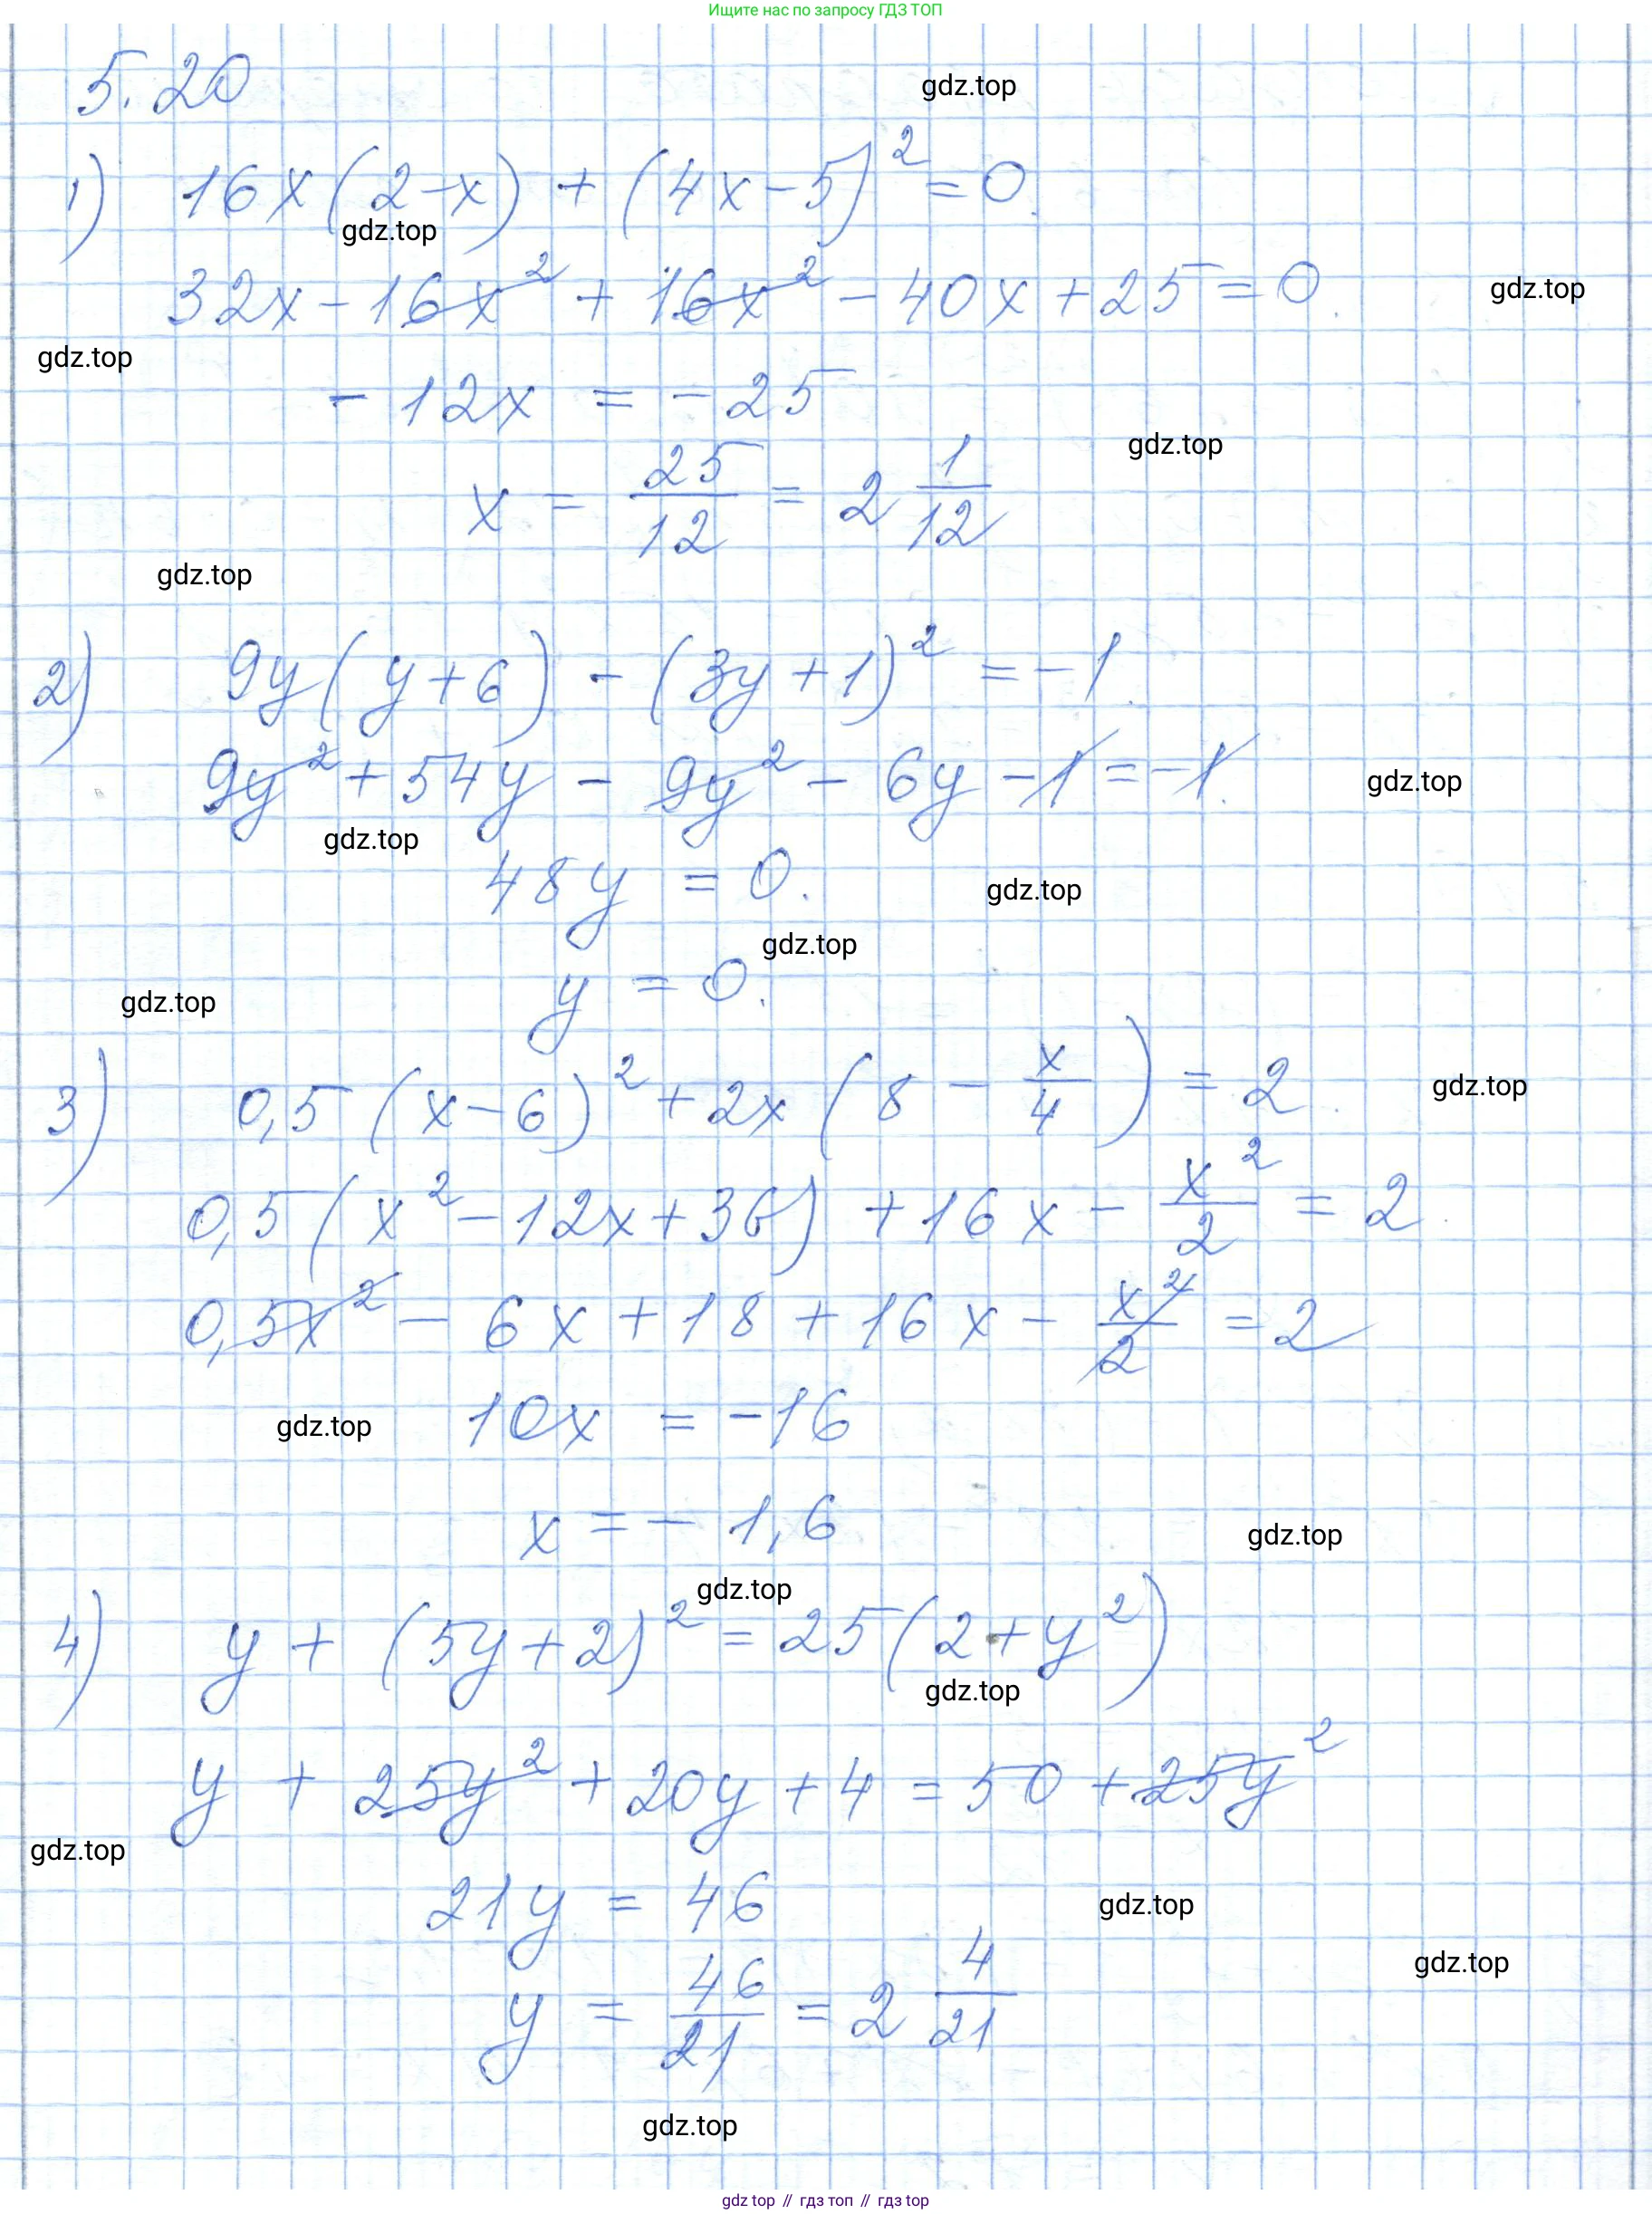 Ищите нас по запросу ГДЗ ТОП
5.20
gdz.top
1) 16x(2-x) + (4x-5)² = 0.
gdz.top
32x - 16x² + 16x² - 40x + 25 = 0.
gdz.top
gdz.top
- 12x = - 25
gdz.top
x = 25/12 = 2 1/12
gdz.top
2) 9y(y+6) - (3y+1)² = -1.
9y² + 54y - 9y² - 6y - 1 = -1.
gdz.top
gdz.top
48y = 0.
gdz.top
gdz.top
y = 0.
gdz.top
3) 0,5(x-6)² + 2x(8 - x/4) = 2.
gdz.top
0,5(x² - 12x + 36) + 16x - x²/2 = 2.
0,5x² - 6x + 18 + 16x - x²/2 = 2
10x = -16
gdz.top
x = - 1,6
gdz.top
gdz.top
4) y + (5y+2)² = 25(2+y²)
gdz.top
y + 25y² + 20y + 4 = 50 + 25y²
gdz.top
21y = 46
gdz.top
gdz.top
y = 46/21 = 2 4/21
gdz.top
gdz top // гдз топ // гдз top